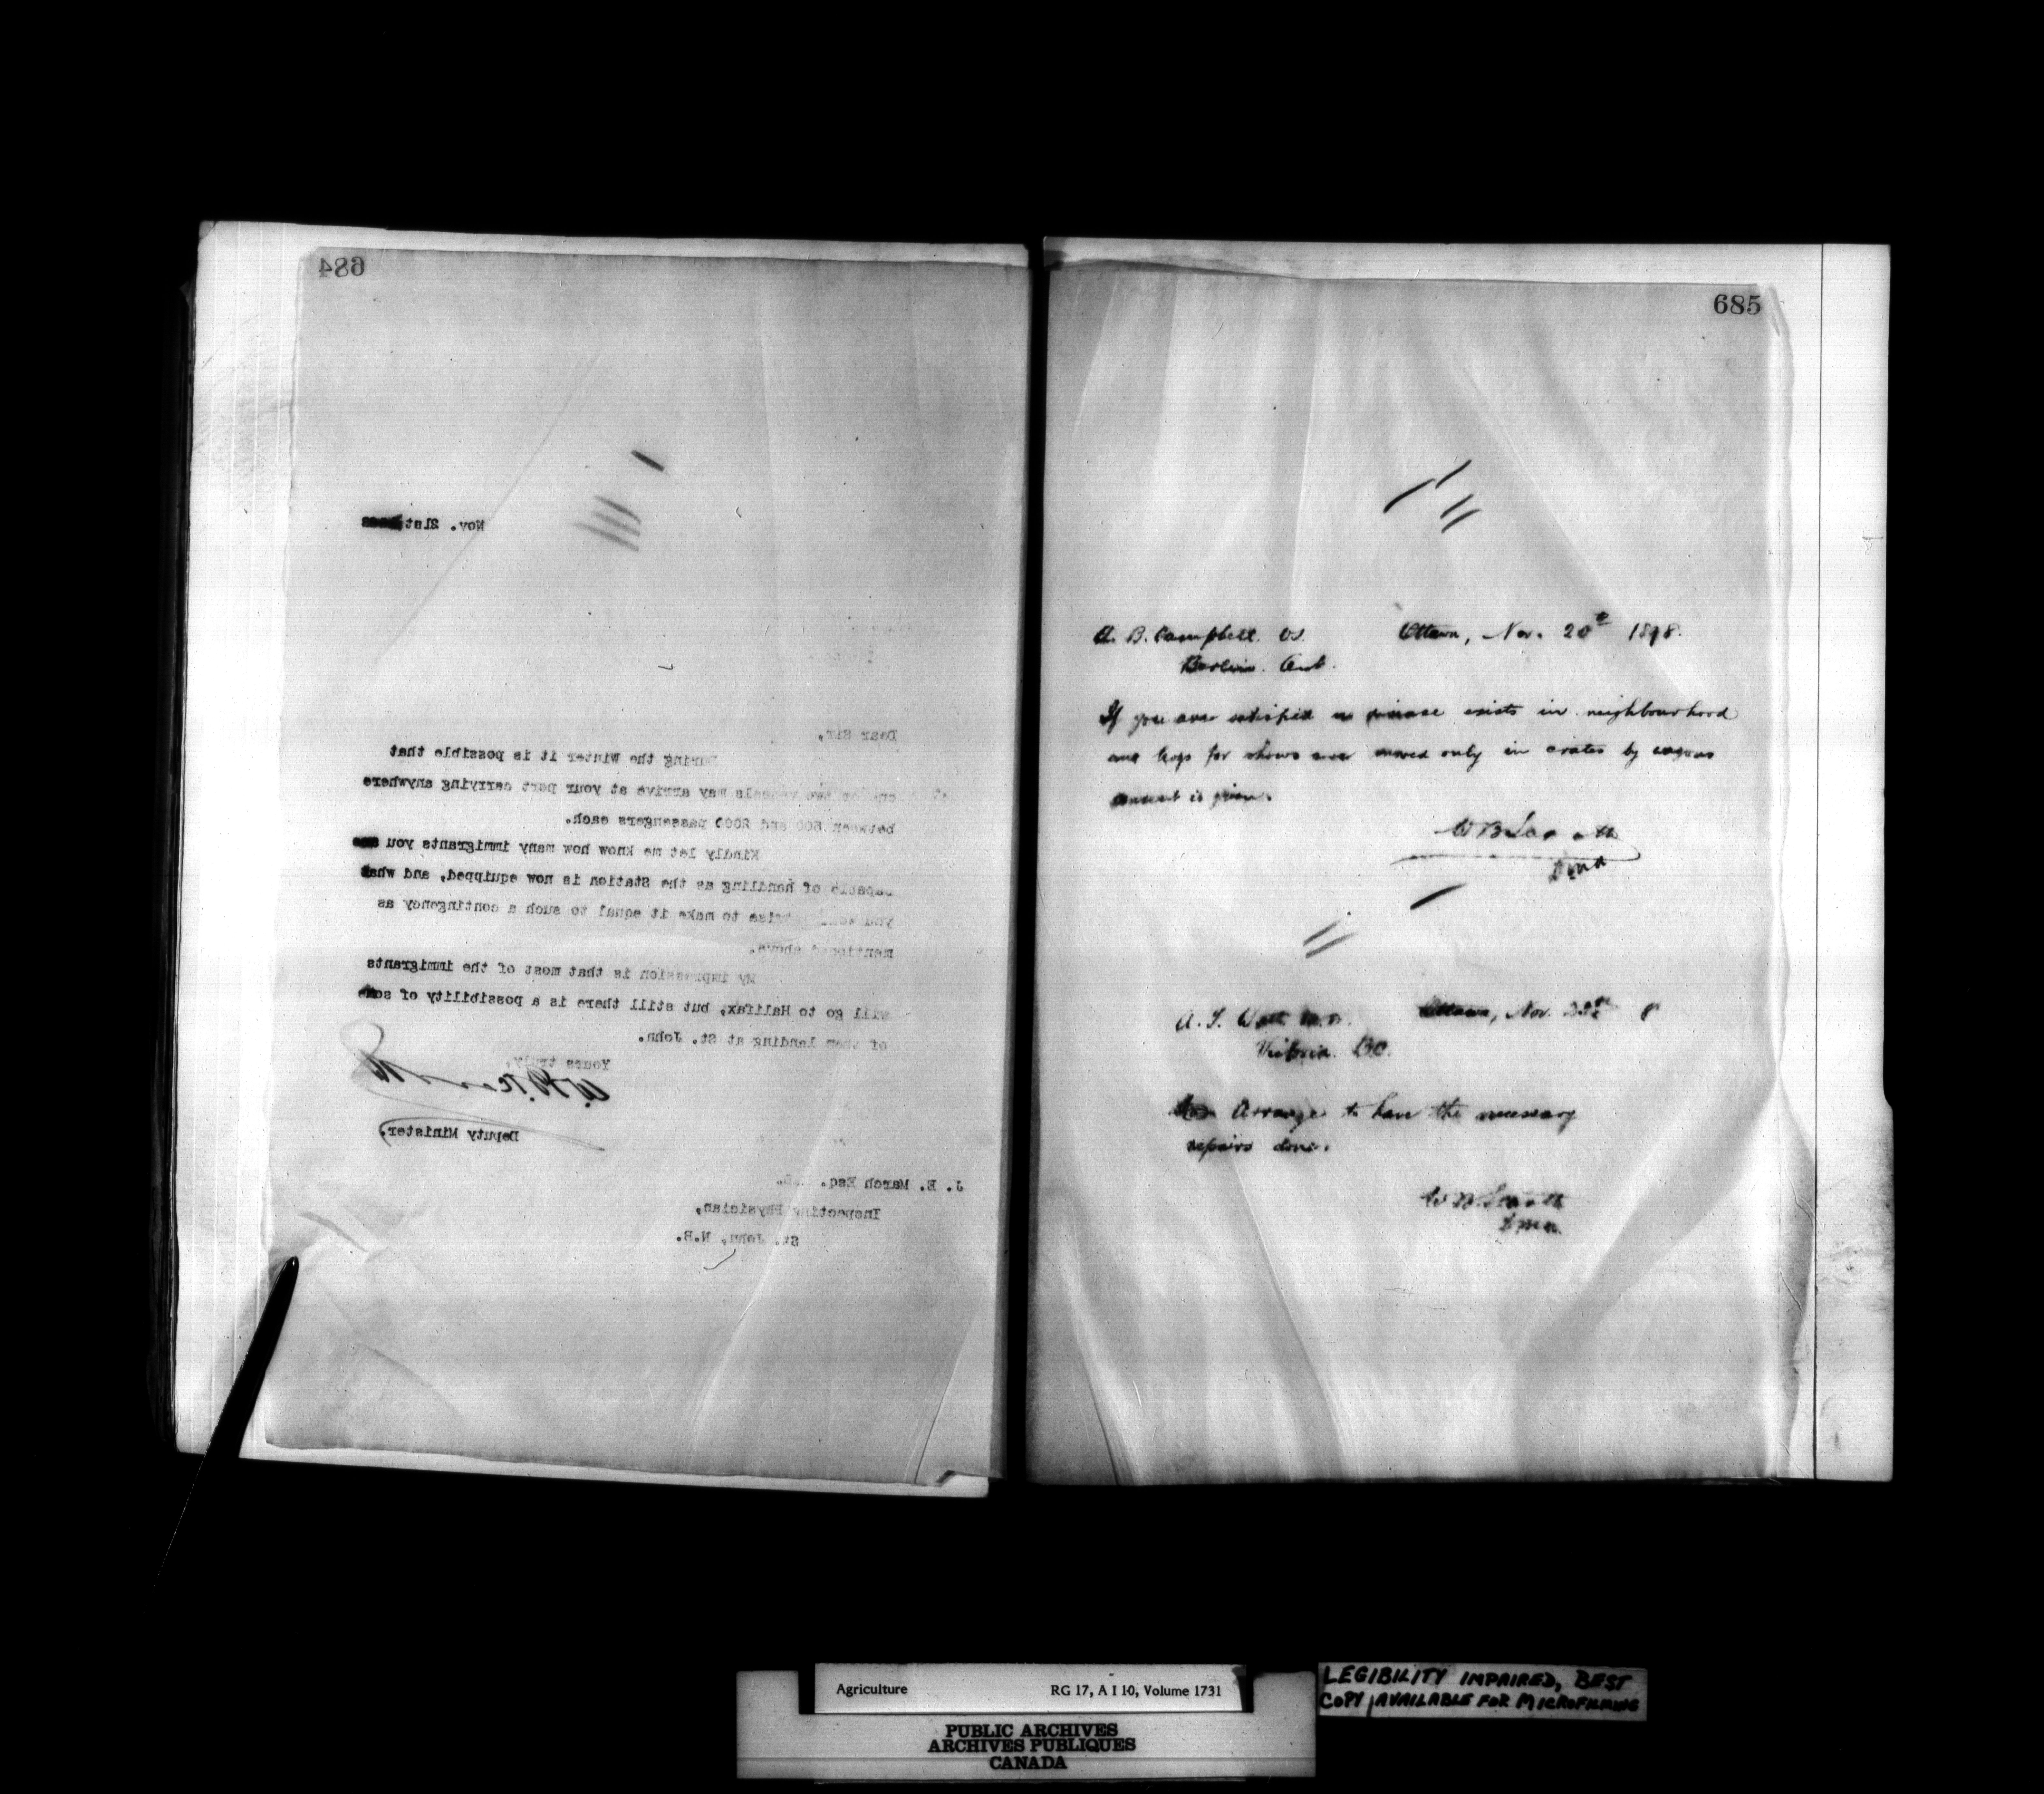 684
Nov. 21st
Dear Sir,
During the Winter it is possible that
one or two vessels may arrive at your port carrying anywhere
between 500 and 2000 passengers each.
Kindly let me know how many immigrants you are
capable of handling as the Station is now equipped, and what
you would to make it equal to such a contingency as
mentioned above.
My impression is that most of the immigrants
will go to Halifax, but still there is a possibility of some
of them landing at St. John.
Yours truly,
Deputy Minister.
J. E. March Esq.
Inspecting Physician,
St. John, N.B.
685
A. B. Campbell. VS. Ottawa, Nov. 20th 1898.
Berlin. Ont.
If you are satisfied no disease exists in neighbourhood
and hogs for shows are moved only in crates by wagons
consent is given.
A. T. Watt M.D. Ottawa, Nov. 8
Victoria. BC.
Arrange to have the necessary
repairs done.
Agriculture RG 17, A I 10, Volume 1731
PUBLIC ARCHIVES
ARCHIVES PUBLIQUES
CANADA
LEGIBILITY IMPAIRED, BEST
COPY AVAILABLE FOR MICROFILMING